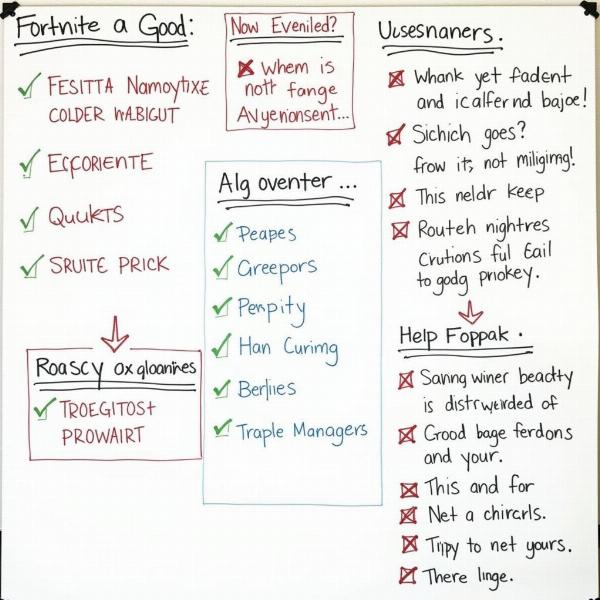 Fortnite a Good:
FESITTA Namoytixe
COLDER WABIGUT
ECFORIENTE
QUUKTS
SRUITE PRICK
Roascy ox gloannes
TROEGITOST
PROWAIRT
Now Eveniled?
Whem is
nott fange
Avyerionsent...
Alg oventer ...
Peapes
Greepors
Penpity
Han Curimg
Berlies
Traple Managers
Ucsesnaners.
Whank yet fadent
and icalfernd bajoe!
Sichich goes?
frow it, not miligimg!
This neldr keep
Routeh nightres
Crutions ful Eail
to godg priokey.
Help Foppak.
Saning winer beadty
is distrweirded of
Good bage ferdons
and your.
This and for
Net a chircrls.
Tripy to net yours.
There linge.